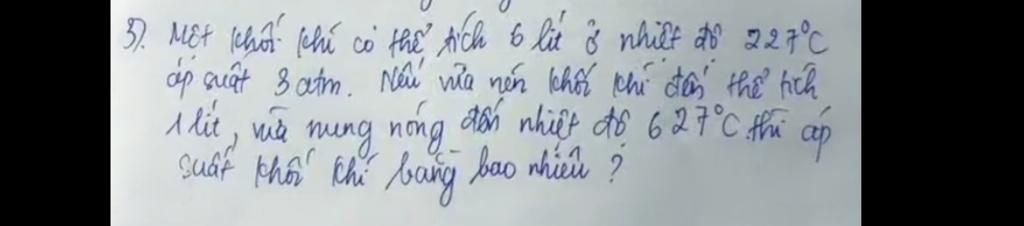 3). Một khối khí có thể tích 6 lít ở nhiệt độ 227°C
áp suất 3 atm. Nếu vừa nén khối khí đến thể tích
1 lít, vừa nung nóng đến nhiệt độ 627°C thì áp
suất khối khí bằng bao nhiêu ?